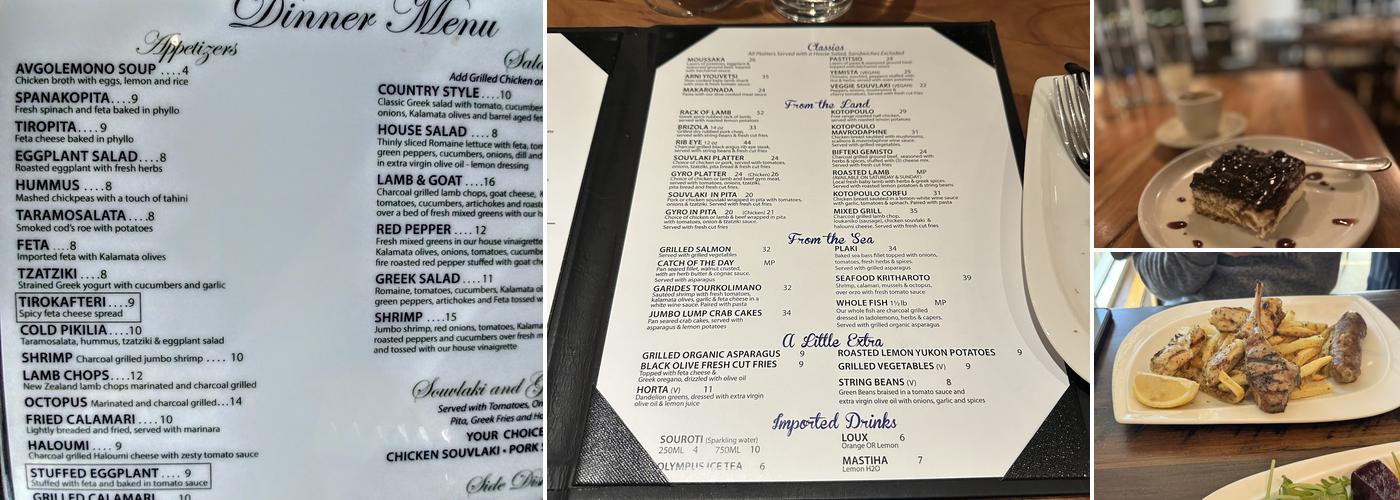 Dinner Menu
Appetizers
AVGOLEMONO SOUP ....4
Chicken broth with eggs, lemon and rice
SPANAKOPITA....9
Fresh spinach and feta baked in phyllo
TIROPITA....9
Feta cheese baked in phyllo
EGGPLANT SALAD....8
Roasted eggplant with fresh herbs
HUMMUS ....8
Mashed chickpeas with a touch of tahini
TARAMOSALATA....8
Smoked cod's roe with potatoes
FETA ....8
Imported feta with Kalamata olives
TZATZIKI ....8
Strained Greek yogurt with cucumbers and garlic
TIROKAFTERI....9
Spicy feta cheese spread
COLD PIKILIA....10
Taramosalata, hummus, tzatziki & eggplant salad
SHRIMP Charcoal grilled jumbo shrimp .... 10
LAMB CHOPS....12
New Zealand lamb chops marinated and charcoal grilled
OCTOPUS Marinated and charcoal grilled...14
FRIED CALAMARI ....10
Lightly breaded and fried, served with marinara
HALOUMI .... 9
Charcoal grilled Haloumi cheese with zesty tomato sauce
STUFFED EGGPLANT .... 9
Stuffed with feta and baked in tomato sauce
GRILLED CALAMARI 10
Add Grilled Chicken or
COUNTRY STYLE....10
Classic Greek salad with tomato, cucumber
onions, Kalamata olives and barrel aged fet
HOUSE SALAD ....8
Thinly sliced Romaine lettuce with feta, tom
green peppers, cucumbers, onions, dill and
in extra virgin olive oil - lemon dressing
LAMB & GOAT ....16
Charcoal grilled lamb chops, goat cheese,
tomatoes, cucumbers, artichokes and roaste
over a bed of fresh mixed greens with our h
RED PEPPER ....12
Fresh mixed greens in our house vinaigrette
Kalamata olives, onions, tomatoes, cucumbe
fire roasted red pepper stuffed with goat che
GREEK SALAD ....11
Romaine, tomatoes, cucumbers, Kalamata ol
green peppers, artichokes and Feta tossed w
SHRIMP ....15
Jumbo shrimp, red onions, tomatoes, Kalama
roasted peppers and cucumbers over fresh m
and tossed with our house vinaigrette
Souvlaki and G
Served with Tomatoes, On
Pita, Greek Fries and Ho
YOUR CHOICE
CHICKEN SOUVLAKI • PORK S
Side Dis
Classics
All Platters Served with a House Salad, Sandwiches Excluded
MOUSSAKA 26
ARNI YIOUVETSI 35
MAKARONADA 24
Pasta with our slow cooked meat sauce
PASTITSIO 24
YEMISTA (VEGAN)
VEGGIE SOUVLAKI (VEGAN) 22
From the Land
RACK OF LAMB 52
Greek spice rubbed rack of lamb,
served with roasted lemon potatoes
BRIZOLA 14 oz 33
Grilled dry rubbed pork chop,
served with string beans & fresh cut fries
RIB EYE 12 oz 44
Charcoal grilled black angus rib eye steak,
served with string beans & fresh cut fries
SOUVLAKI PLATTER 24
Choice of chicken or pork, served with tomatoes,
onions, tzatziki, pita bread & fresh cut fries
GYRO PLATTER 24 (Chicken) 26
Choice of chicken or lamb and beef gyro meat,
served with tomatoes, onion, tzatziki,
pita bread and fresh cut fries
SOUVLAKI IN PITA 20
Pork or chicken souvlaki wrapped in pita with tomatoes,
onions & tzatziki. Served with fresh cut fries
GYRO IN PITA 20 (Chicken) 21
Choice of chicken or lamb & beef wrapped in pita
with tomatoes, onion & tzatziki sauce.
Served with fresh cut fries
KOTOPOULO 29
Free range roasted half chicken,
served with roasted lemon potatoes
KOTOPOULO
MAVRODAPHNE 31
Chicken breast sautéed with mushrooms,
scallions & mavrodaphne wine sauce.
Served with grilled vegetables
BIFTEKI GEMISTO 24
Charcoal grilled ground beef, seasoned with
herbs & spices, stuffed with (3) cheese mix.
Served with fresh cut fries
ROASTED LAMB MP
(AVAILABLE ON SATURDAY & SUNDAY)
Local fresh baby lamb with herbs & greek spices.
Served with roasted lemon potatoes & string beans
KOTOPOULO CORFU 31
Chicken breast sautéed in a lemon-white wine sauce
with garlic, tomatoes & spinach. Paired with pasta
MIXED GRILL 35
Charcoal grilled lamb chop,
loukaniko (sausage), chicken souvlaki &
haloumi cheese. Served with fresh cut fries
From the Sea
GRILLED SALMON 32
Served with grilled vegetables
CATCH OF THE DAY MP
Pan seared fillet, walnut crusted,
with an herb butter & cognac sauce.
Served with asparagus
GARIDES TOURKOLIMANO 32
Sauteed shrimp with fresh tomatoes,
kalamata olives, garlic & feta cheese in a
white wine sauce. Paired with pasta
JUMBO LUMP CRAB CAKES 34
Pan seared crab cakes, served with
asparagus & lemon potatoes
PLAKI 34
Baked sea bass fillet topped with onions,
tomatoes, fresh herbs & spices.
Served with grilled asparagus
SEAFOOD KRITHAROTO 39
Shrimp, calamari, mussels & octopus,
over orzo with fresh tomato sauce
WHOLE FISH 1½lb MP
Our whole fish are charcoal grilled
dressed in ladolemono, herbs & capers.
Served with grilled organic asparagus
A Little Extra
GRILLED ORGANIC ASPARAGUS 9
BLACK OLIVE FRESH CUT FRIES 9
Topped with feta cheese &
Greek oregano, drizzled with olive oil
HORTA (V) 11
Dandelion greens, dressed with extra virgin
olive oil & lemon juice
ROASTED LEMON YUKON POTATOES 9
GRILLED VEGETABLES (V) 9
STRING BEANS (V) 8
Green Beans braised in a tomato sauce and
extra virgin olive oil with onions, garlic and spices
Imported Drinks
SOUROTI (Sparkling water)
250ML 4 750ML 10
OLYMPUS ICE TEA 6
LOUX 6
Orange OR Lemon
MASTIHA 7
Lemon H2O